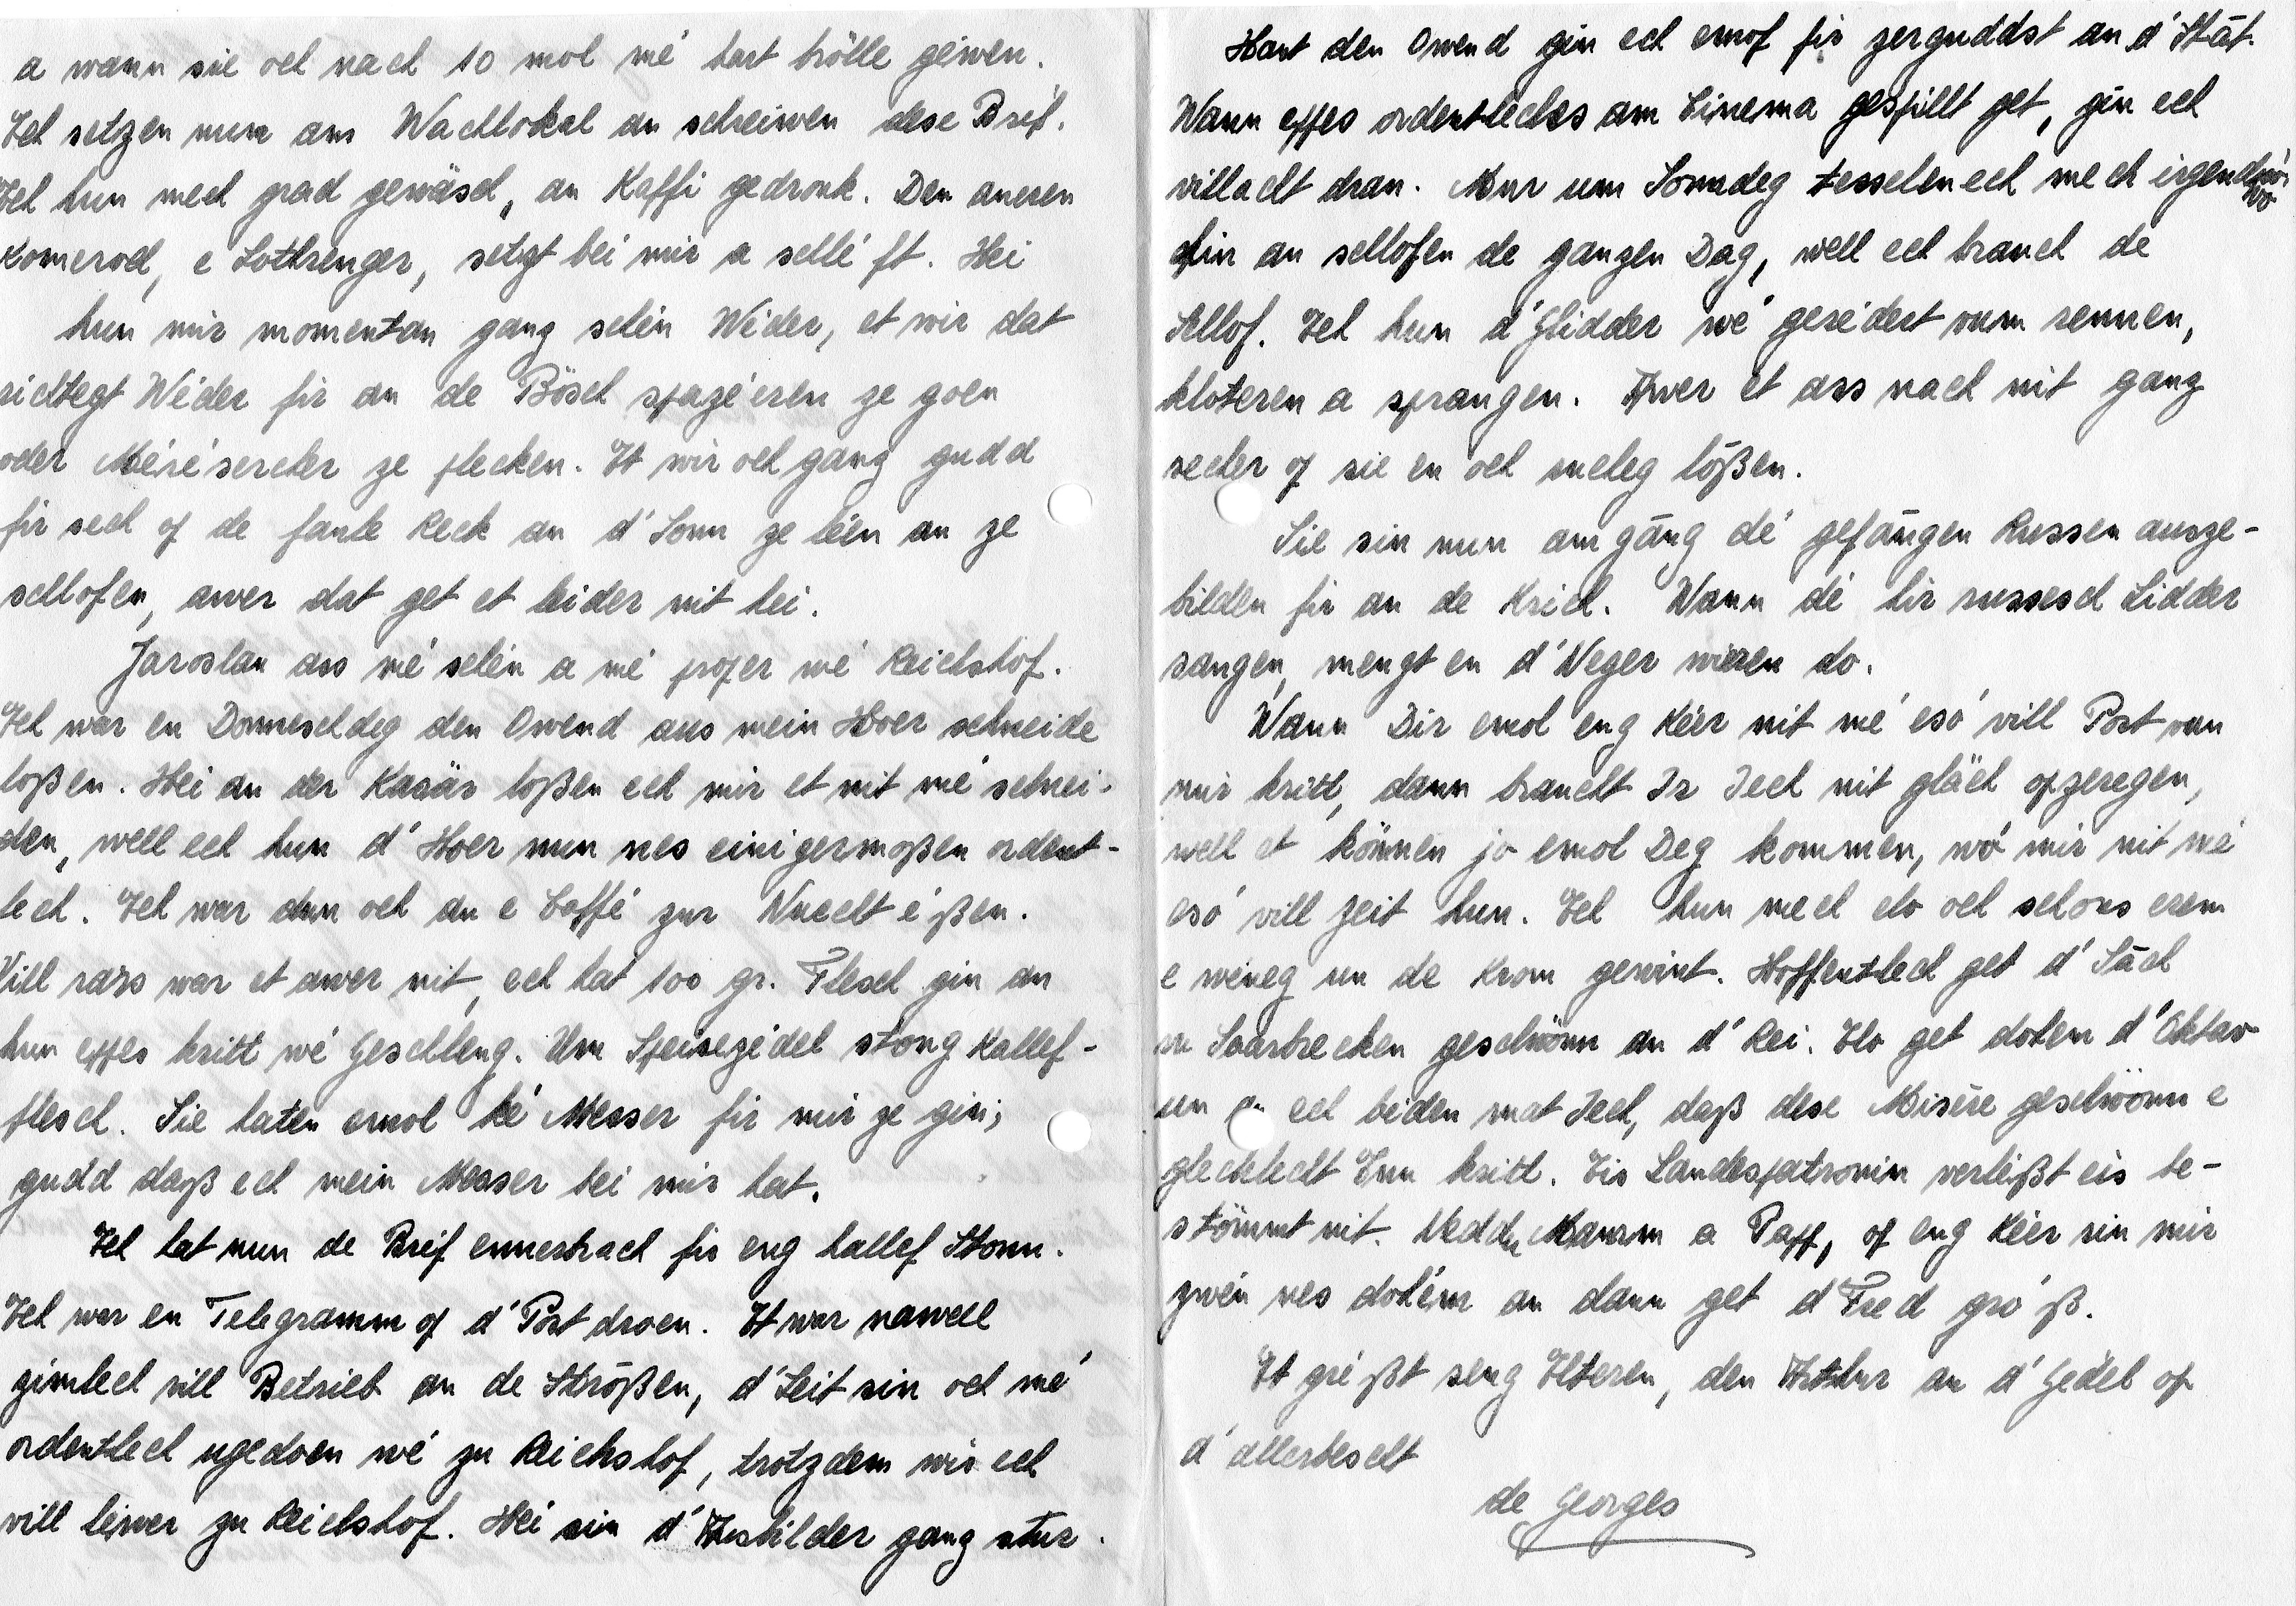 a wann sie och nach 10 mol mé hart brölle géwen.
Ech setzen nun am Wachlokal an schreiwen dese Bréf.
Ech hun mech grad gewäsch, an Kaffi gedronk. Den aneren
Komerod, e Lothrenger, setzt bei mir a schléft. Hei
hun mir momentan ganz schéin Wéder, et wir dat
richtegt Wéder fir an de Bösch spazéieren ze goen
oder Méréisercher ze plecken. Et wir och ganz gudd
fir sech of de faule Reck an d'Sonn ze léen an ze
schlofen, awer dat get et leider nit hei.
Jaroslau ass mé schéin a mé proper wé Reichshof.
Ech war en Donneschdeg den Owend aus mein Hoer schneide
loßen. Hei an der Kasär loßen ech mir et nit mé schnei-
den, well ech hun d'Hoer nun nes einigermoßen ordent-
lech. Ech war dun och an e Caffé zur Nuecht éßen.
Vill rars war et awer nit, ech hat 100 gr. Flesch gin an
hun eppes kritt wé Geschleng. Um Speisezédel stong Kallef-
flesch. Sie haten emol ké Messer fir mir ze gin;
gudd daß ech mein Messer bei mir hat.
Ech hat nun de Bréif ennerbrach fir eng hallef Stonn.
Ech war en Telegramm of d'Post droen. Et war nawell
zimlech vill Betrieb an de Stroßen, d'Leit sin och mé
ordentlech ugedoen wé zu Reichshof, trotzdem wir ech
vill léiwer zu Reichshof. Hei sin d'Ausbilder ganz stur.
Haut den Owend gin ech emol fir zerguddst an d'Stāt.
Wann eppes ordentleches am Cinema gespillt get, gin ech
villācht dran. Mar um Sonndeg tesselen ech mech irgendwó
hin an schlofen de ganzen Dag, well ech brauch de
Schlof. Ech hun d'Glidder wé gerédert vum rennen,
kloteren a sprangen. Awer et ass nach nit ganz
secher of sie en och eweg lößen.
Sie sin nun am gāng dé gefāngen Russen ausze-
bilden fir an de Krich. Wann dé hir russesch Lidder
sangen, mengt en d'Neger wieren do.
Wann Dir emol eng Kéier nit mé esó vill Post vun
mir kritt, dann braucht Ir Iech nit gläch opzeregen,
well et können jo emol Deg kommen, wó mir nit mé
esó vill Zeit hun. Ech hun mech elo och schons erem
e wéneg un de Krom gewint. Hoffentlech get d'Sāch
zu Saarbrecken geschwönn an d'Rei. Elo get dohem d'Oktav
un an ech bieden mat Iech, daß dese Misère geschwönn e
glecklecht Enn kritt. Eis Landespatronin verléißt eis be-
stömmt nit. Nëddu Mamm a Papp, of eng Kéier sin mir
zwéin nes dohém an dann get d'Fred gróß.
Et gréßt seng Elteren, den Arthur an d'Gedel op
d'allerbescht
de Georges